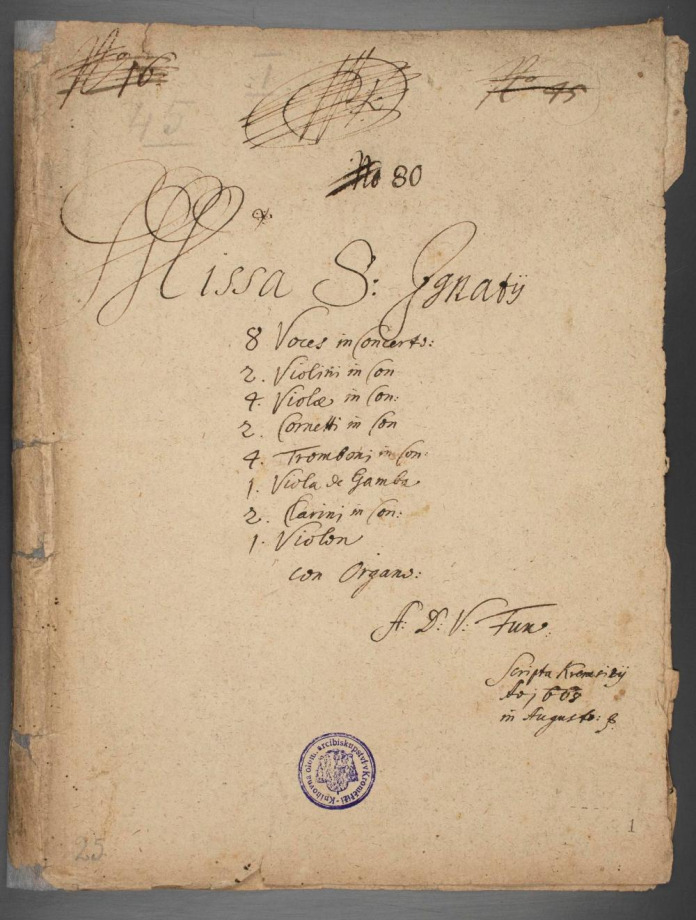 No 16
1
No 45
45
No 80
Missa S: Ignatÿ
8 Voces in Concerto:
2. Violini in Con
4. Violæ in Con:
2. Cornetti in Con
4. Tromboni in Con:
1. Viola de Gamba
2. Clarini in Con:
1. Violon
con Organo:
A: D: V: Fux:
Scripta Kremsirÿ
in Augusto:
Knihovna olom. arcibiskupství v Kroměříži
1
25